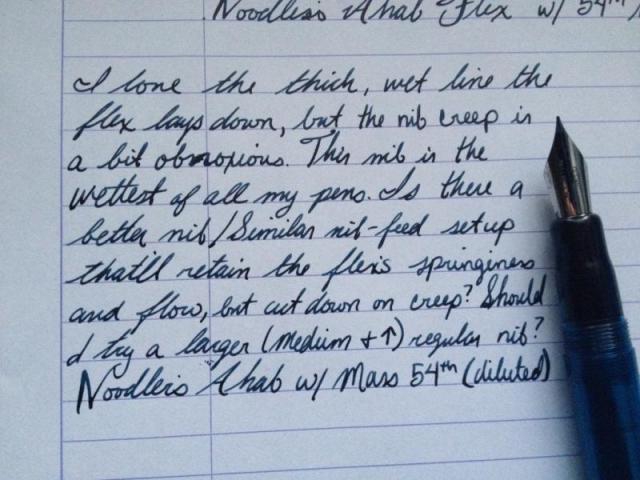 Noodler's Ahab Flex w/ 54th
I love the thick, wet line the
flex lays down, but the nib creep is
a bit obnoxious. This nib is the
wettest of all my pens. Is there a
better nib/Similar nib-feed setup
that'll retain the flex's springiness
and flow, but cut down on creep? Should
I try a larger (medium + ↑) regular nib?
Noodler's Ahab w/ Mass 54th (diluted)